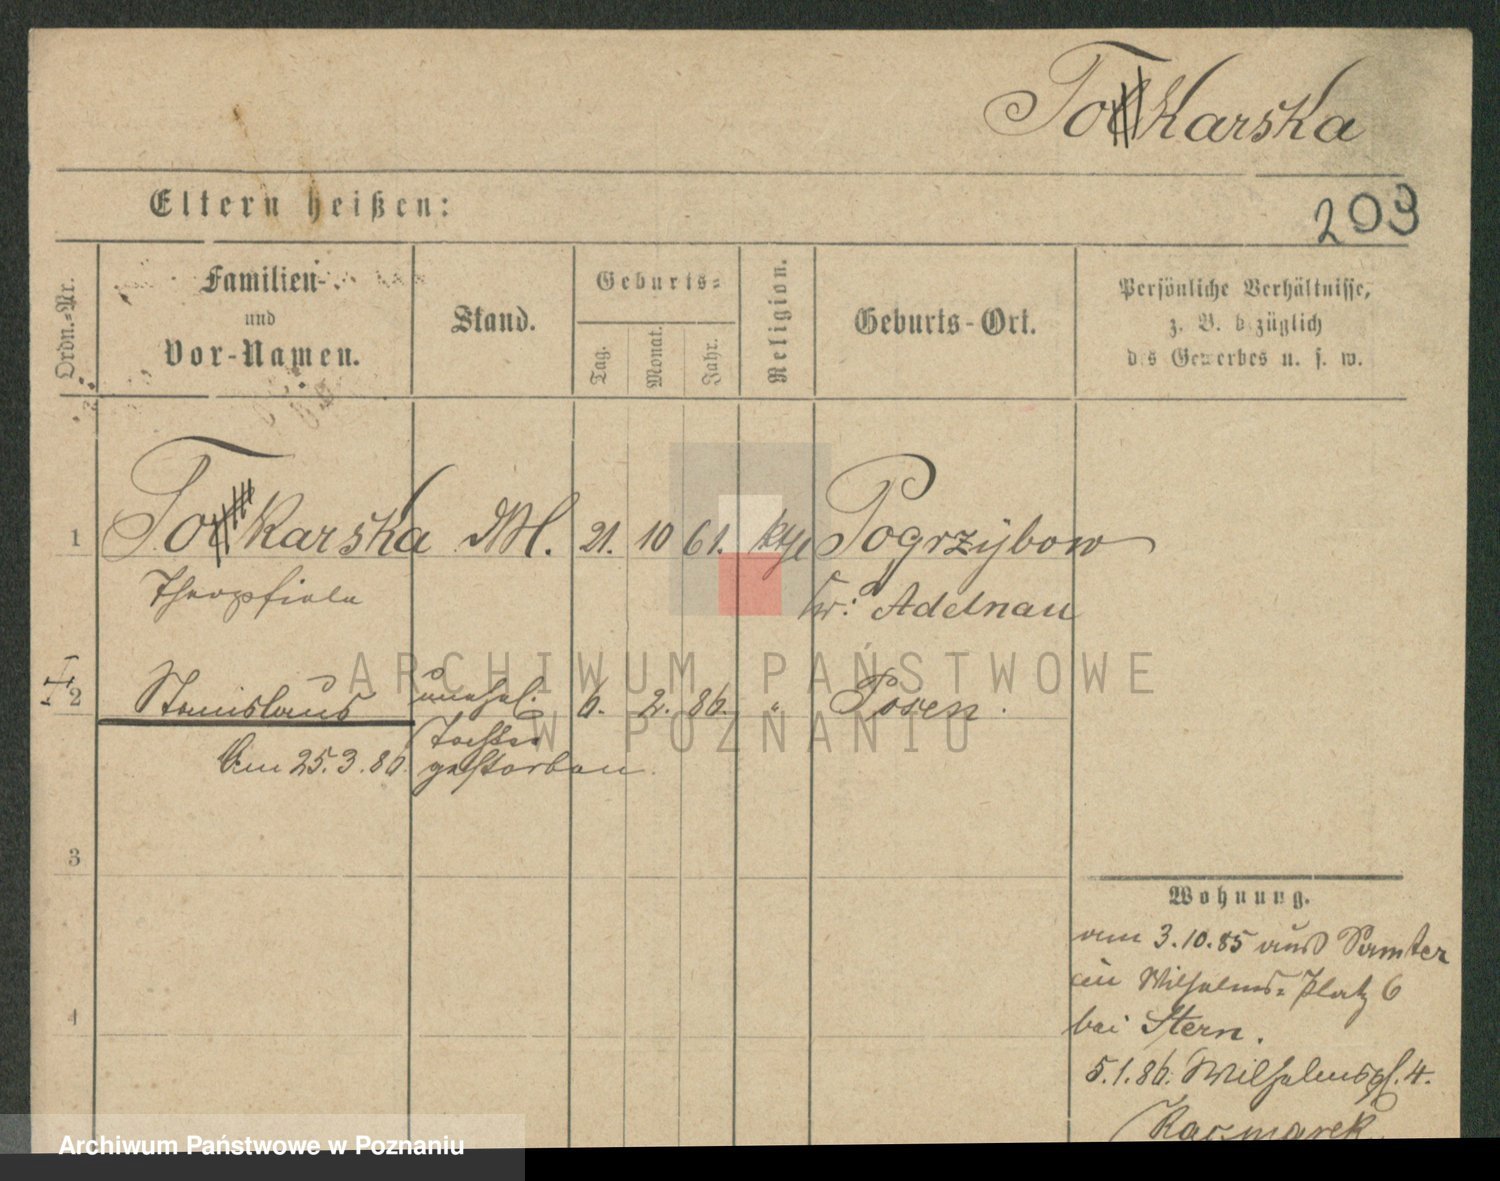 Tokarska
203
Eltern heißen:
Ordn.-Nr.
Familien-
und
Vor-Namen.
Stand.
Geburts-
Tag.
Monat.
Jahr.
Religion.
Geburts-Ort.
Persönliche Verhältnisse,
z. B. bezüglich
des Gewerbes u. s. w.
1 Tokarska M. 21. 10 61. kth Pogrzybow
Theophiela Kr: Adelnau
2 Stanislaus unehel. 6. 2. 86. " Posen.
Tochter
Am 25.3.86. gestorben.
3
4
Wohnung.
am 3.10.85 aus Samter
in Wilhelms-Platz 6
bei Stern.
5.1.86. Wilhelmspl. 4.
Kacmarek
ARCHIWUM PAŃSTWOWE
W POZNANIU
Archiwum Państwowe w Poznaniu